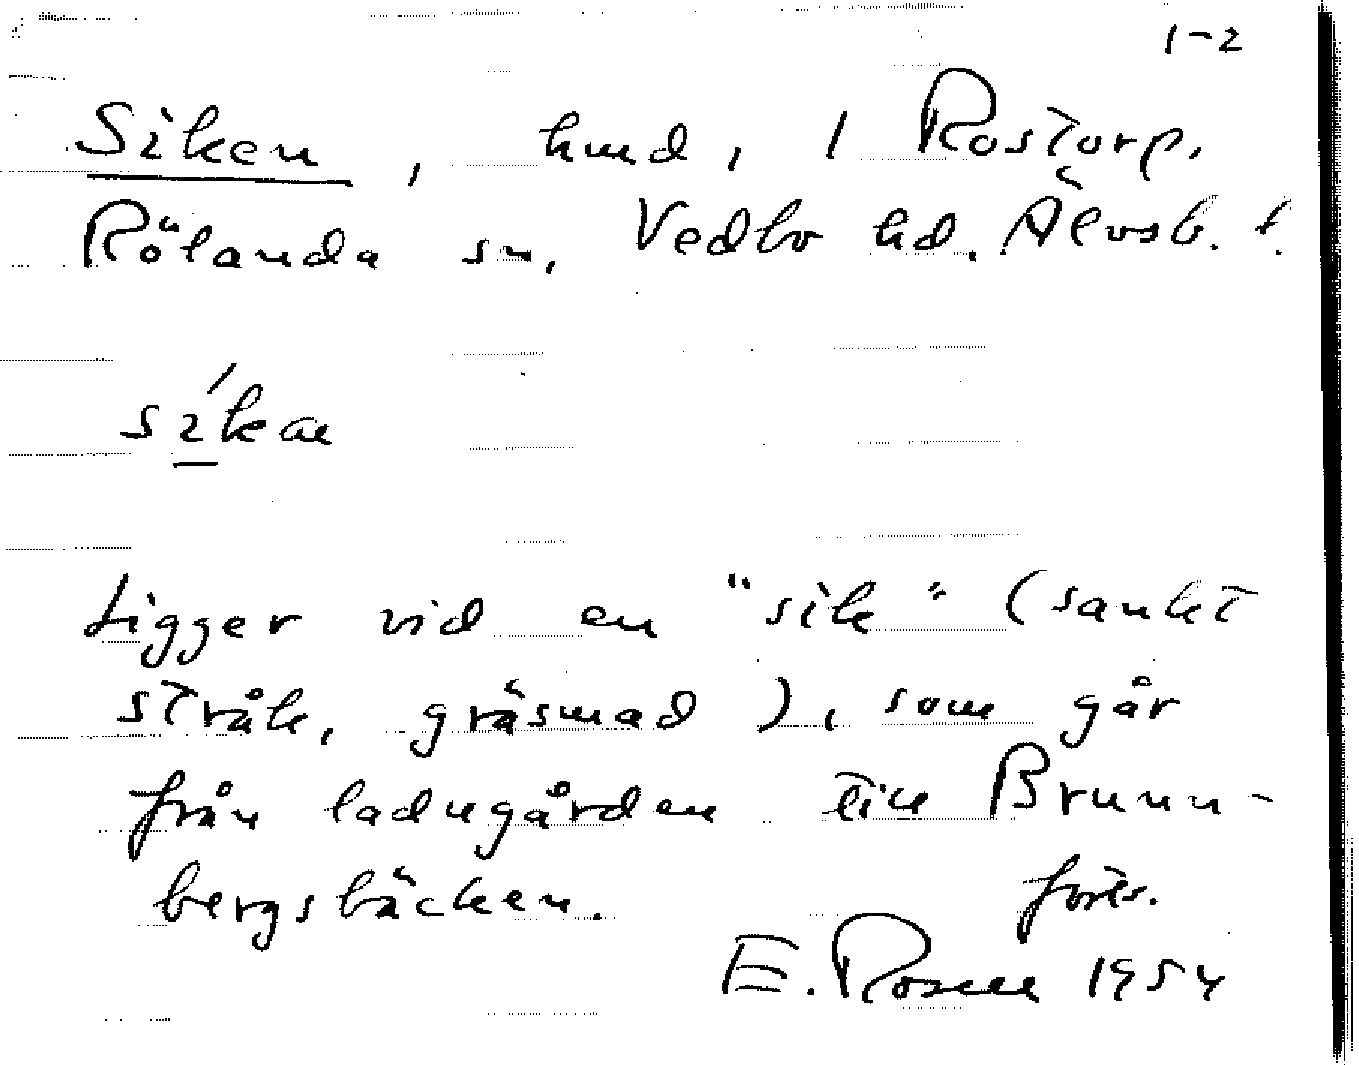 1-2
Siken, hmd, 1 Rostorp,
Rölanda sn, Vedbo hd. Älvsb. l.
síkæ
Ligger vid en "sik" (sankt
stråk, gräsmad), som går
från ladugården till Brunn-
bergsbäcken. forts.
E. Rosell 1954